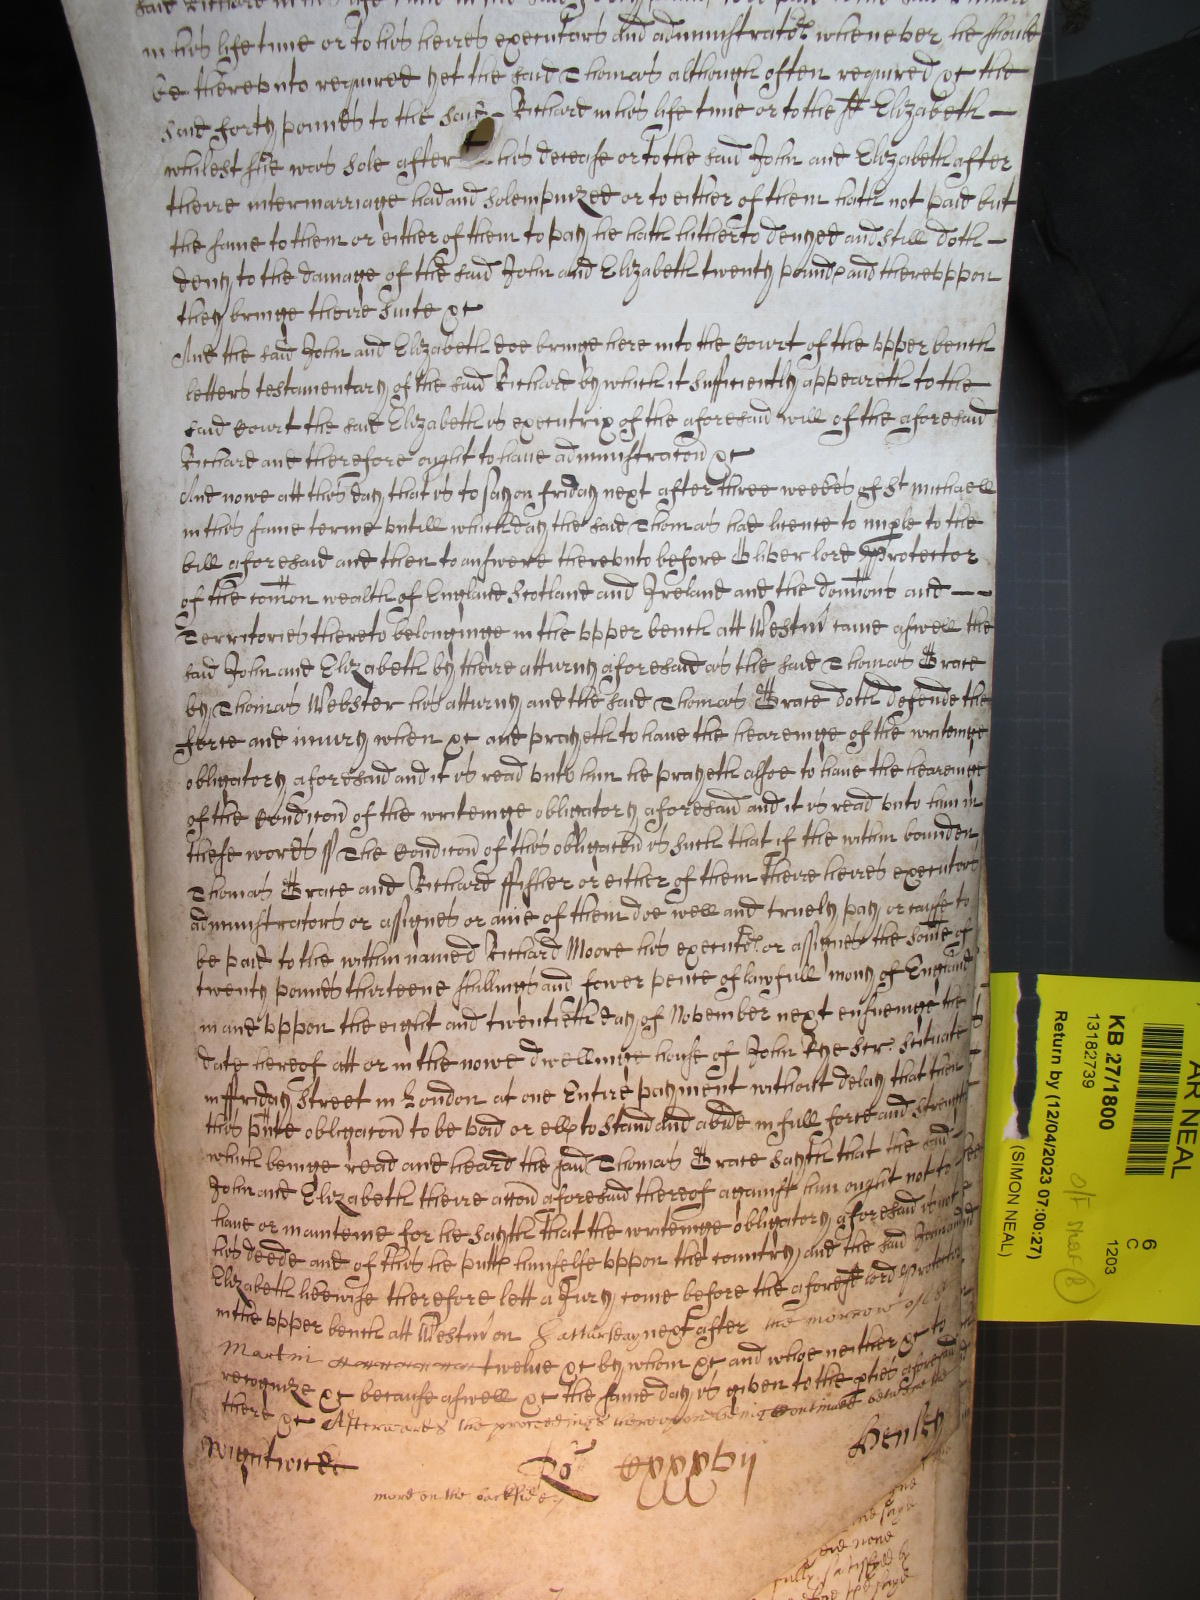 in his life time or to his heires executors and administrators whenever he should
be therevnto required yet the said Thomas although often required &c the
said forty pounds to the said Richard in his life time or to the sd Elizabeth —
whilest she was sole after his decease or to the said John and Elizabeth after
theire intermarriage had and solempnized or to either of them hath not paid but
the same to them or either of them to pay he hath hitherto denyed and still doth —
deny to the damage of the said John and Elizabeth twenty pounds and therevppon
they bringe theire suite &c
And the said John and Elizabeth doe bringe here into the Court of the vpper bench
letters testamentary of the said Richard by which it sufficiently appeareth to the
said Court the said Elizabeth is executrix of the aforesaid will of the aforesaid
Richard and therefore ought to haue administracon &c
And nowe att this day that is to say on friday next after three weekes of St Michaell
in this same terme vntill which day the said Thomas had licence to imple to the
bill aforesaid and then to answere therevnto before Oliver lord Protector
of the comon wealth of England Scotland and Ireland and the domions and — —
Territories thereto belonginge in the vpper bench att Westm came aswell the
said John and Elizabeth by theire atturny aforesaid as the said Thomas Grace
by Thomas Webster his atturny and the said Thomas Grace doth defende the
force and iniury when &c and prayeth to haue the hearenge of the writeinge
obligatory aforesaid and it is read vnto him he prayeth alsoe to haue the heareinge
of the Condicon of the writeinge obligatory aforesaid and it is read vnto him in
these words ss The Condicon of this obligacon is such that if the within bounden
Thomas Grace and Richard ffisher or either of them theire heires executors
administrators or assignes or anie of them doe well and truely pay or cause to
be paid to the within named Richard Moore his executrs or assignes the some of
twenty pounds thirteene shillings and fower pence of lawfull mony of England
in and vppon the eight and twentieth day of November next ensueinge the
date hereof att or in the nowe dwellinge house of John Rye Scr. scituate
in ffriday Street in London at one Entire payment without delay that then
this pnte obligacon to be void or els to stand and abide in full force and strength
which beinge read and heard the said Thomas Grace sayth that the said
John and Elizabeth theire accon aforesaid thereof against him ought not to
haue or mainteine for he sayth that the writeinge obligatory aforesaid is not
his deede and of this he putts himselfe vppon the country and the said John and
Elizabeth likewise therefore lett a Jury come before the aforesd lord Protector
in the vpper bench att Westm on Satturday next after the morrow of St
Martin twelue &c by whom &c and whoe neither &c to
recognize &c because aswell &c the same day is given to the pties aforesaid
there &c Afterwards the proceedings therevpon being Continued betweene the
Wightwicke Ro CXXXVII Henley
more on the backside
and say
did none
fully satisfied
AR NEAL
KB 27/1800
13182739
Return by (12/04/2023 07:00:27)
(SIMON NEAL)
6
C
1203